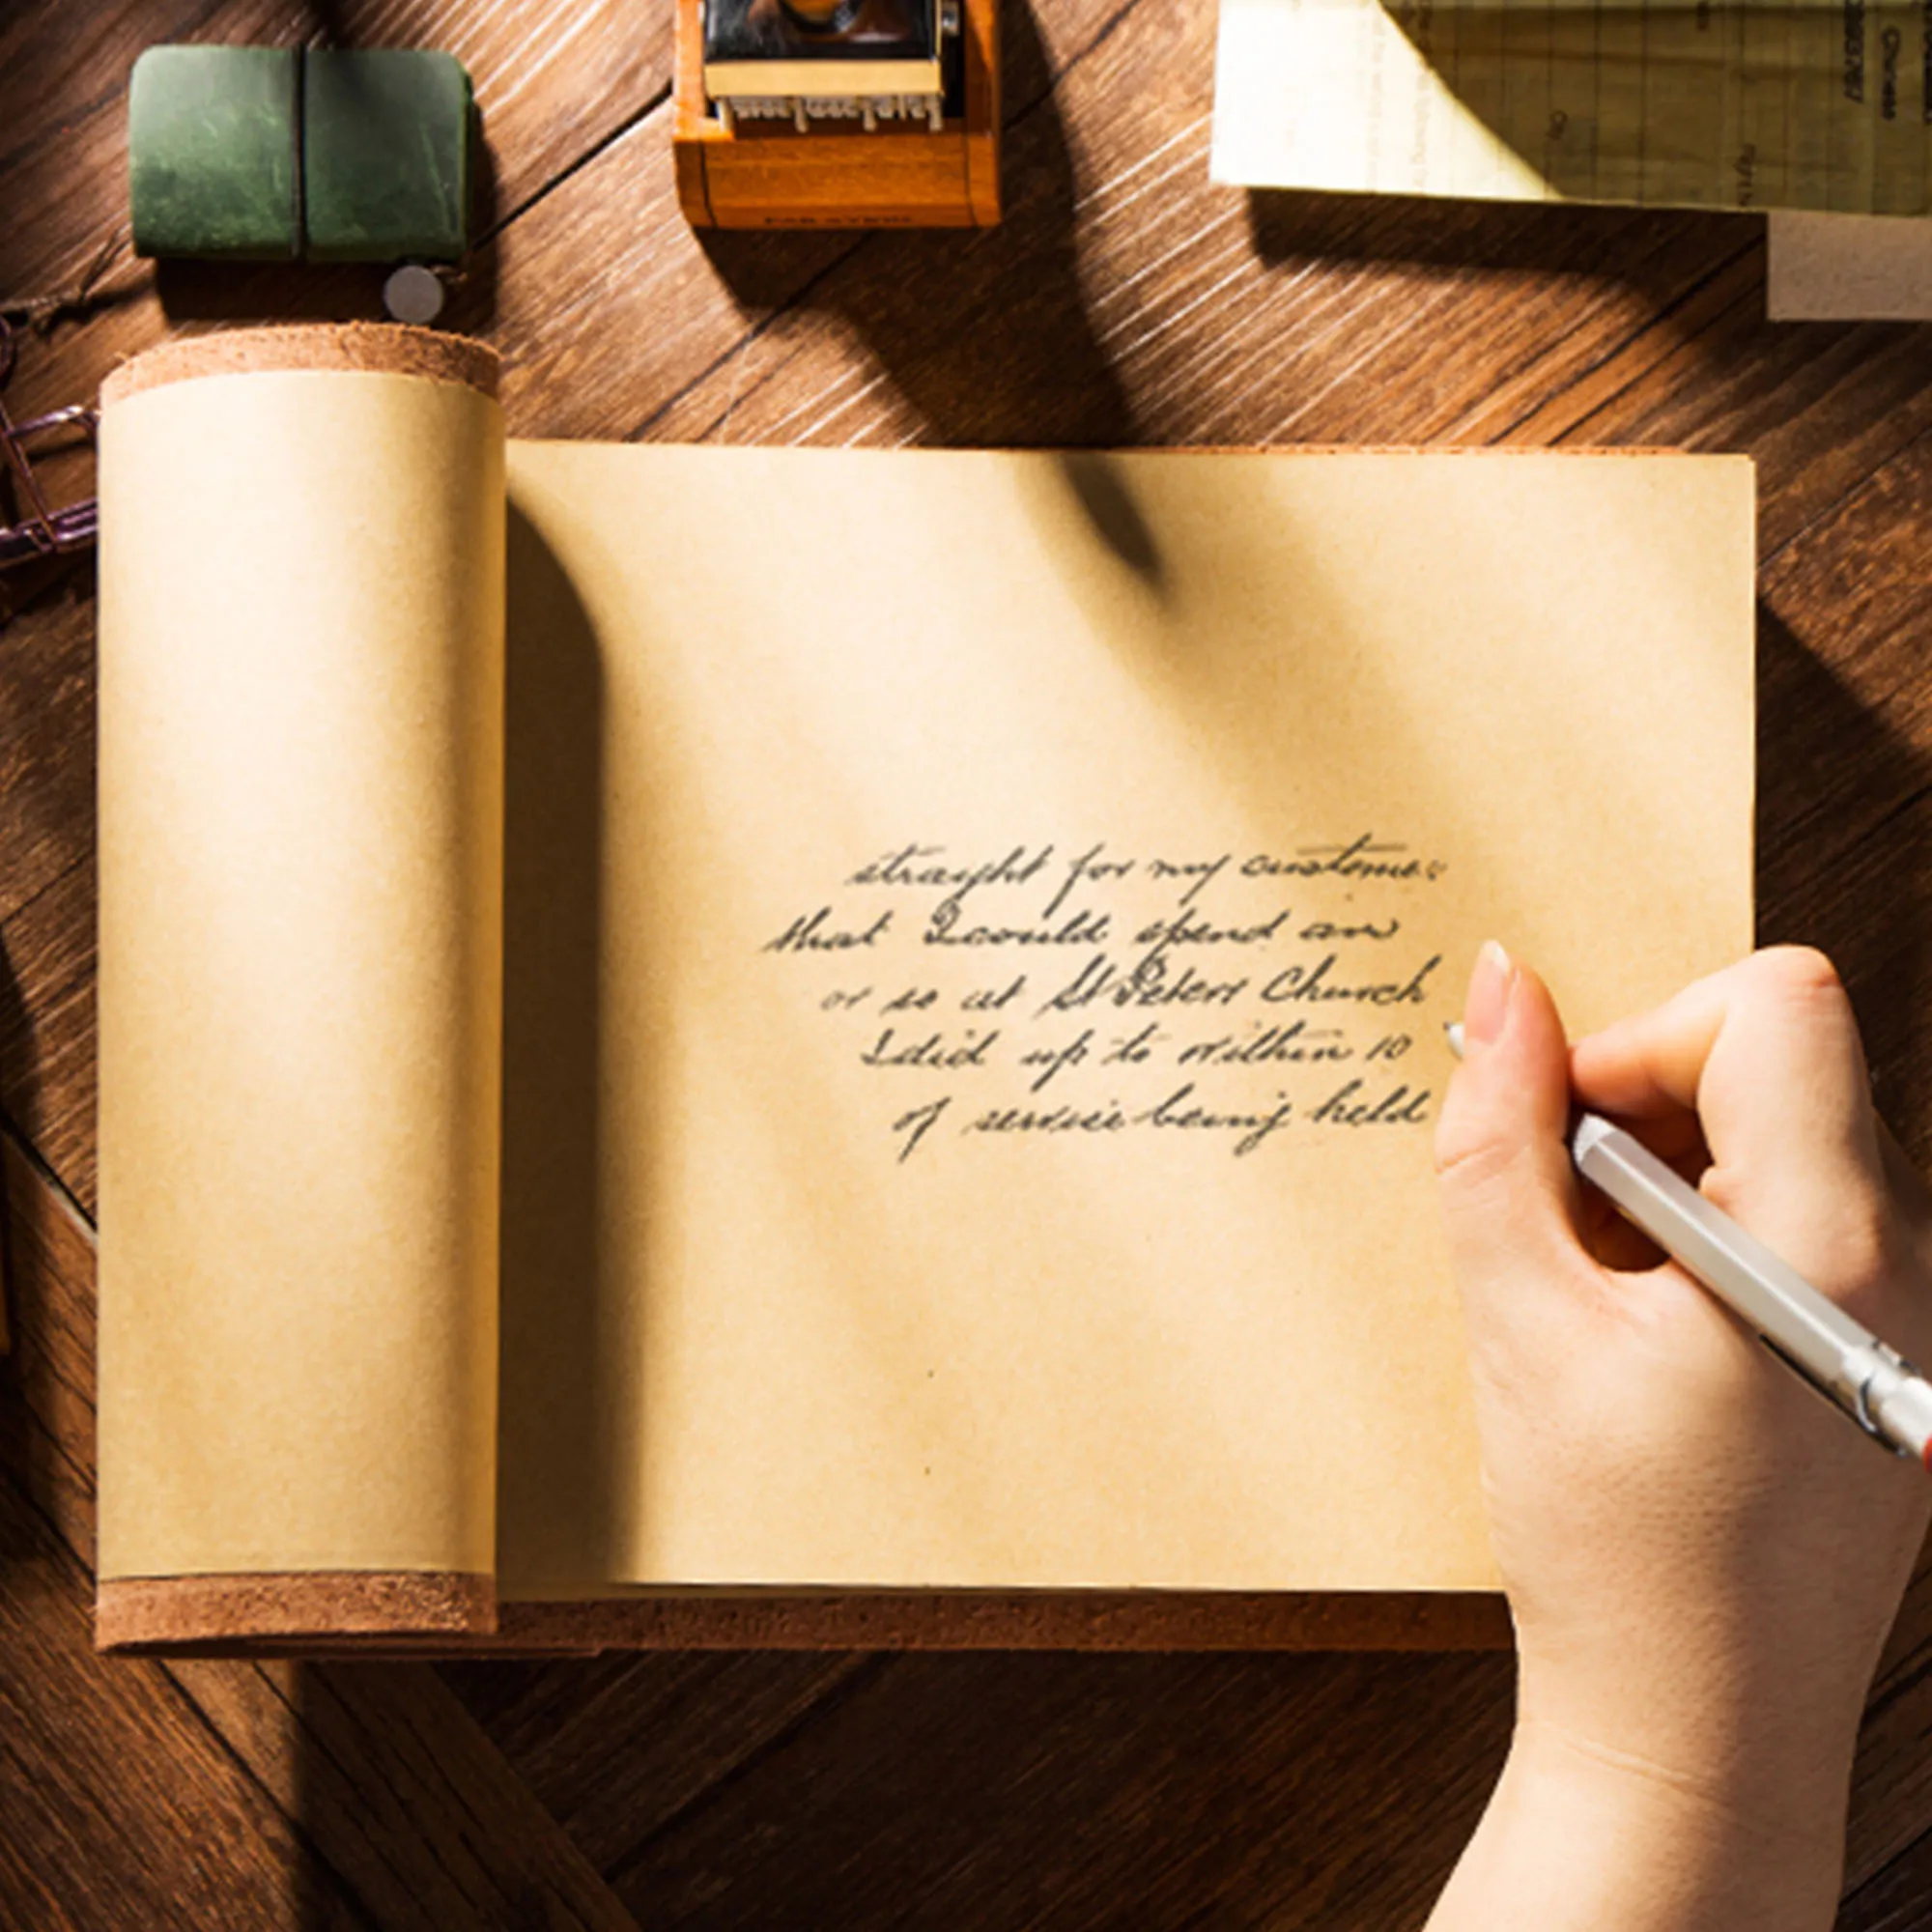 straight for my custome
that I could spend an
or so at St Peters Church
I did up to within 10
of service being held